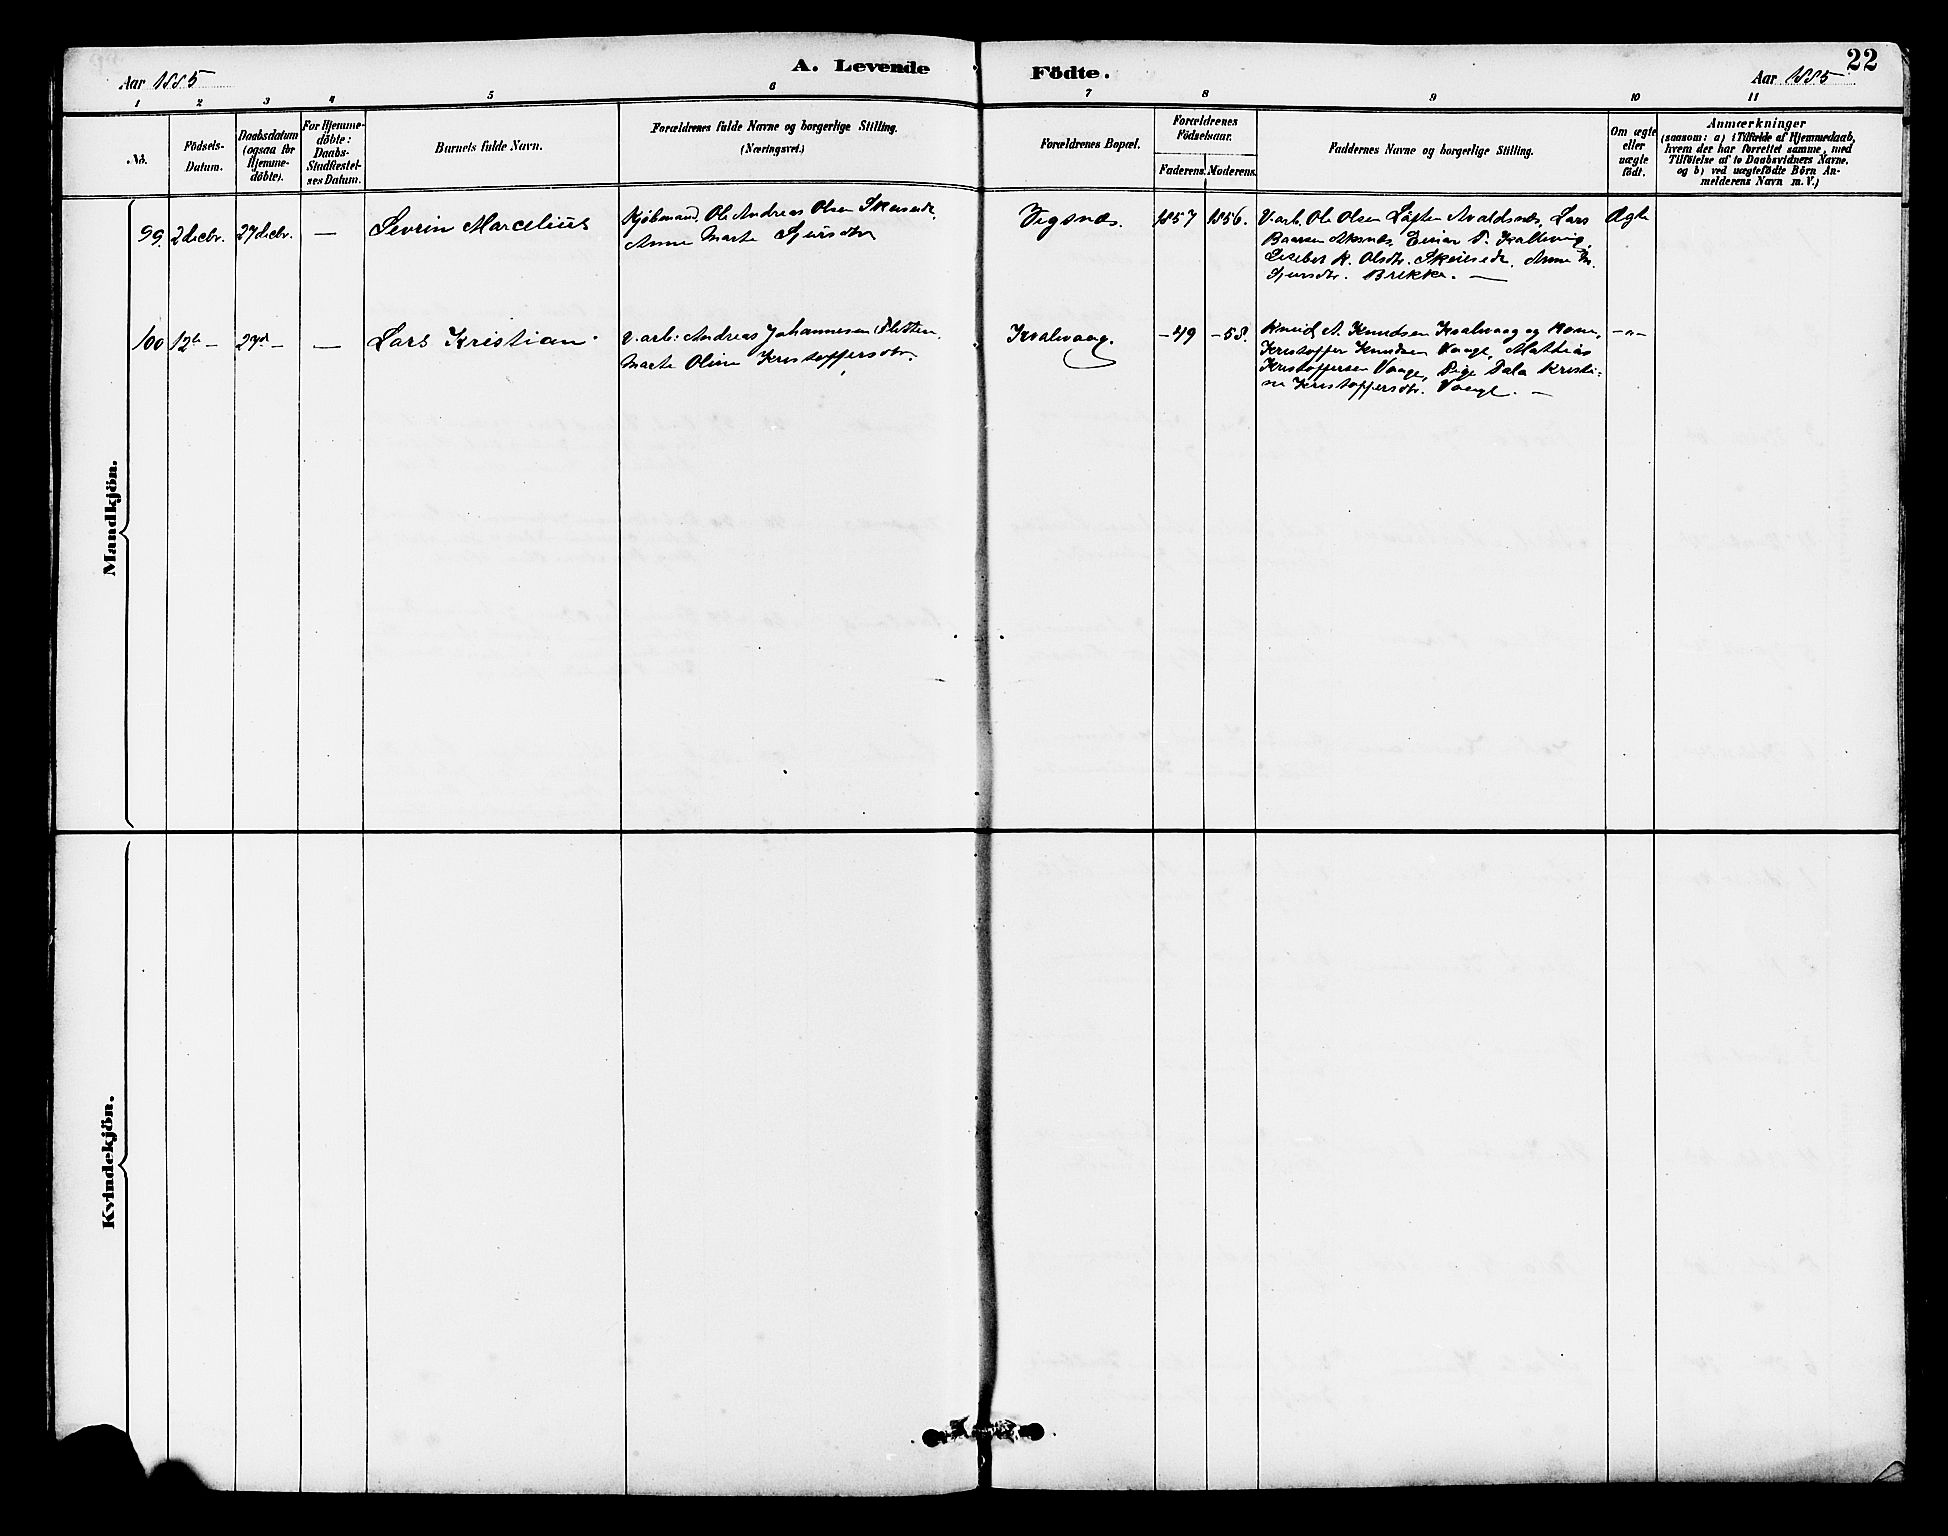 Aar 1885
A. Levende Födte.
Aar 1885
22
1 2 3 4 5 6 7 8 9 10 11
No.
Födsels-
Datum.
Daabsdatum
(ogsaa for
Hjemme-
döbte).
For Hjemme-
döbte:
Daabs-
Stadfæstel-
ses Datum.
Barnets fulde Navn.
Forældrenes fulde Navne og borgerlige Stilling.
(Næringsvei.)
Forældrenes Bopæl.
Forældrenes
Födselsaar.
Faderens. Moderens.
Faddernes Navne og borgerlige Stilling.
Om ægte
eller
uægte
födt.
Anmærkninger
(saasom: a) i Tilfælde af Hjemmedaab,
hvem der har forrettet samme, med
Tilföielse af to Daabsvidners Navne.
og b) ved uægtefödte Börn An-
melderens Navn m. V.)
Mandkjön.
99. 2 decbr. 27 decbr. — Sevrin Marcelius
Kjøbmand. Ole Andreas Olsen
Anna Marta Sjursdtr
Vigsnæs. 1857 1856.
V. arb. Ole Olsen Avaldsnæs, Lars
Baarsen Aksnæs, Einar T. Kallevig,
Lisebet K. Olsdtr. Anna M.
Sjursdtr. Brekke. —
Ægte
100 12te — 29de — — Lars Kristian
V. arb: Andreas Johannesen
Marta Oline Kristoffersdtr.
Kvalvaag. — 49 — 58.
Knud A. Knudsen Kvalvaag og Kone,
Kristoffer Knudsen Vaage, Mathias
Kristoffersen Vaage, Pige Tala Kristi-
ne Kristoffersdtr. Vaage. —
— " —
Kvindekjön.